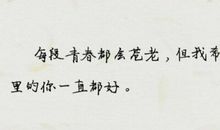 每段青春都会苍老，但我希
里的你一直都好。